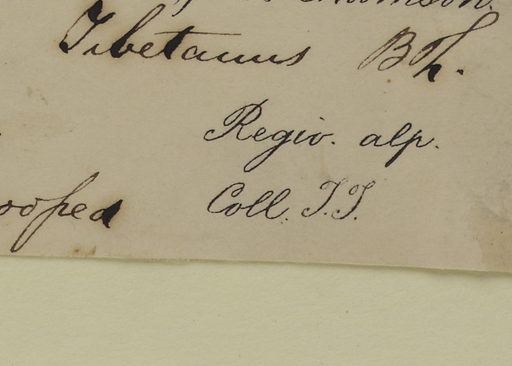 Thomson.
Tibetanus Bth.
Regio. alp.
Coll. T.T.